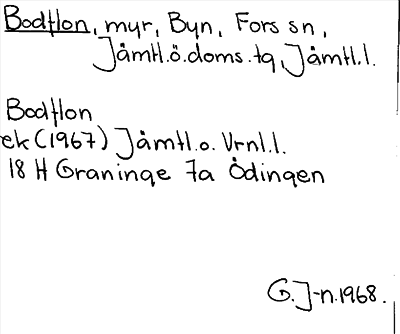 Bodflon, myr, Byn, Fors sn,
Jämtl.ö.doms.tg, Jämtl.l.
Bodflon
ek (1967) Jämtl.o. Vrnl.l.
18 H Graninge 7a Ödingen
G. J-n. 1968.